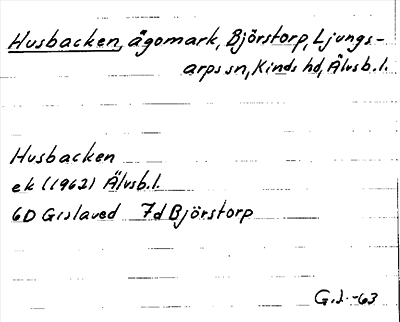 Husbacken, ägomark, Björstorp, Ljungs-
arps sn, Kinds hd, Älvsb.l.
Husbacken
ek (1962) Älvsb.l.
6D Gislaved 7d Björstorp
G.J. -63